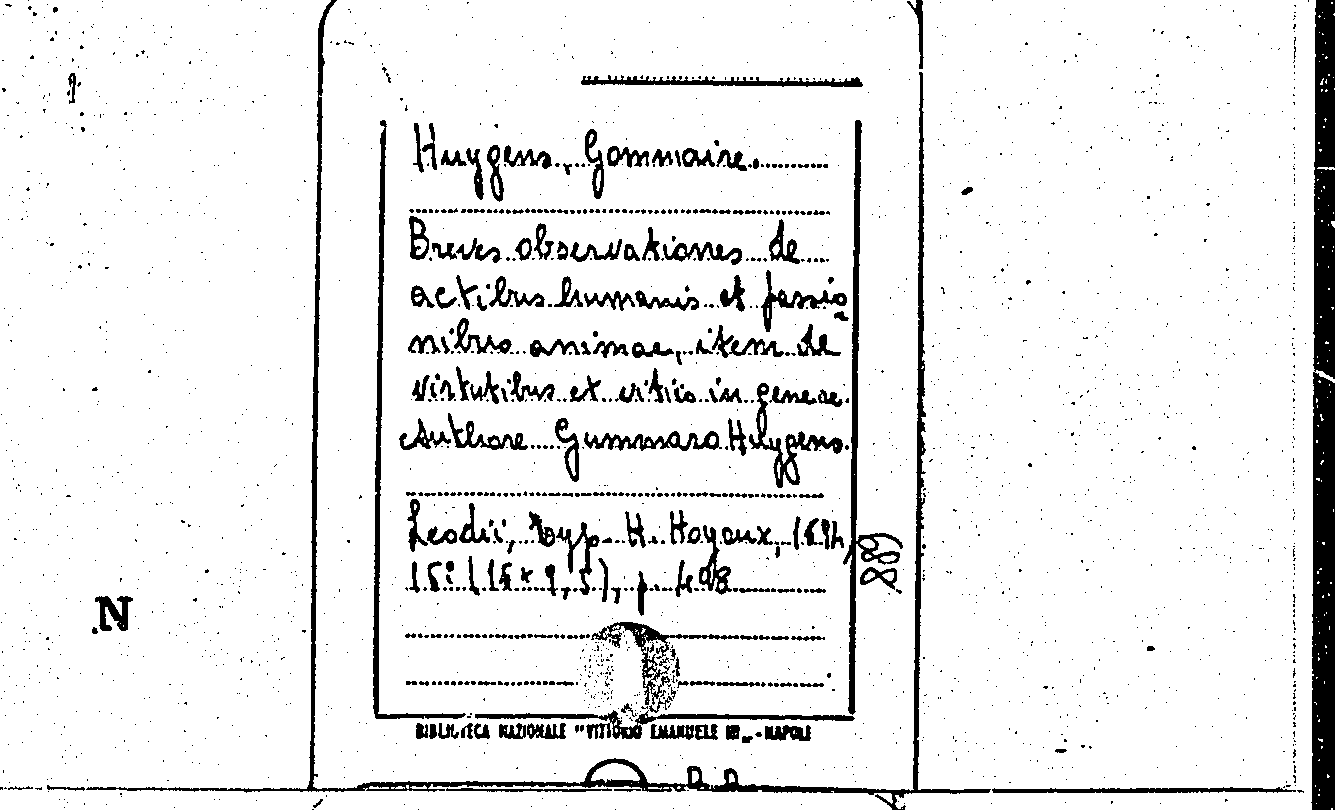 Huygens, Gommaire.
Breves observationes de
actibus humanis et passio
nibus animae, item de
virtutibus et vitiis in genere.
Authore Gummaro Huygens.
Leodii, typ. H. Hoyoux, 1694,
16° (15 x 9,5), p. 498
889
N
BIBLIOTECA NAZIONALE "VITTORIO EMANUELE III" - NAPOLI